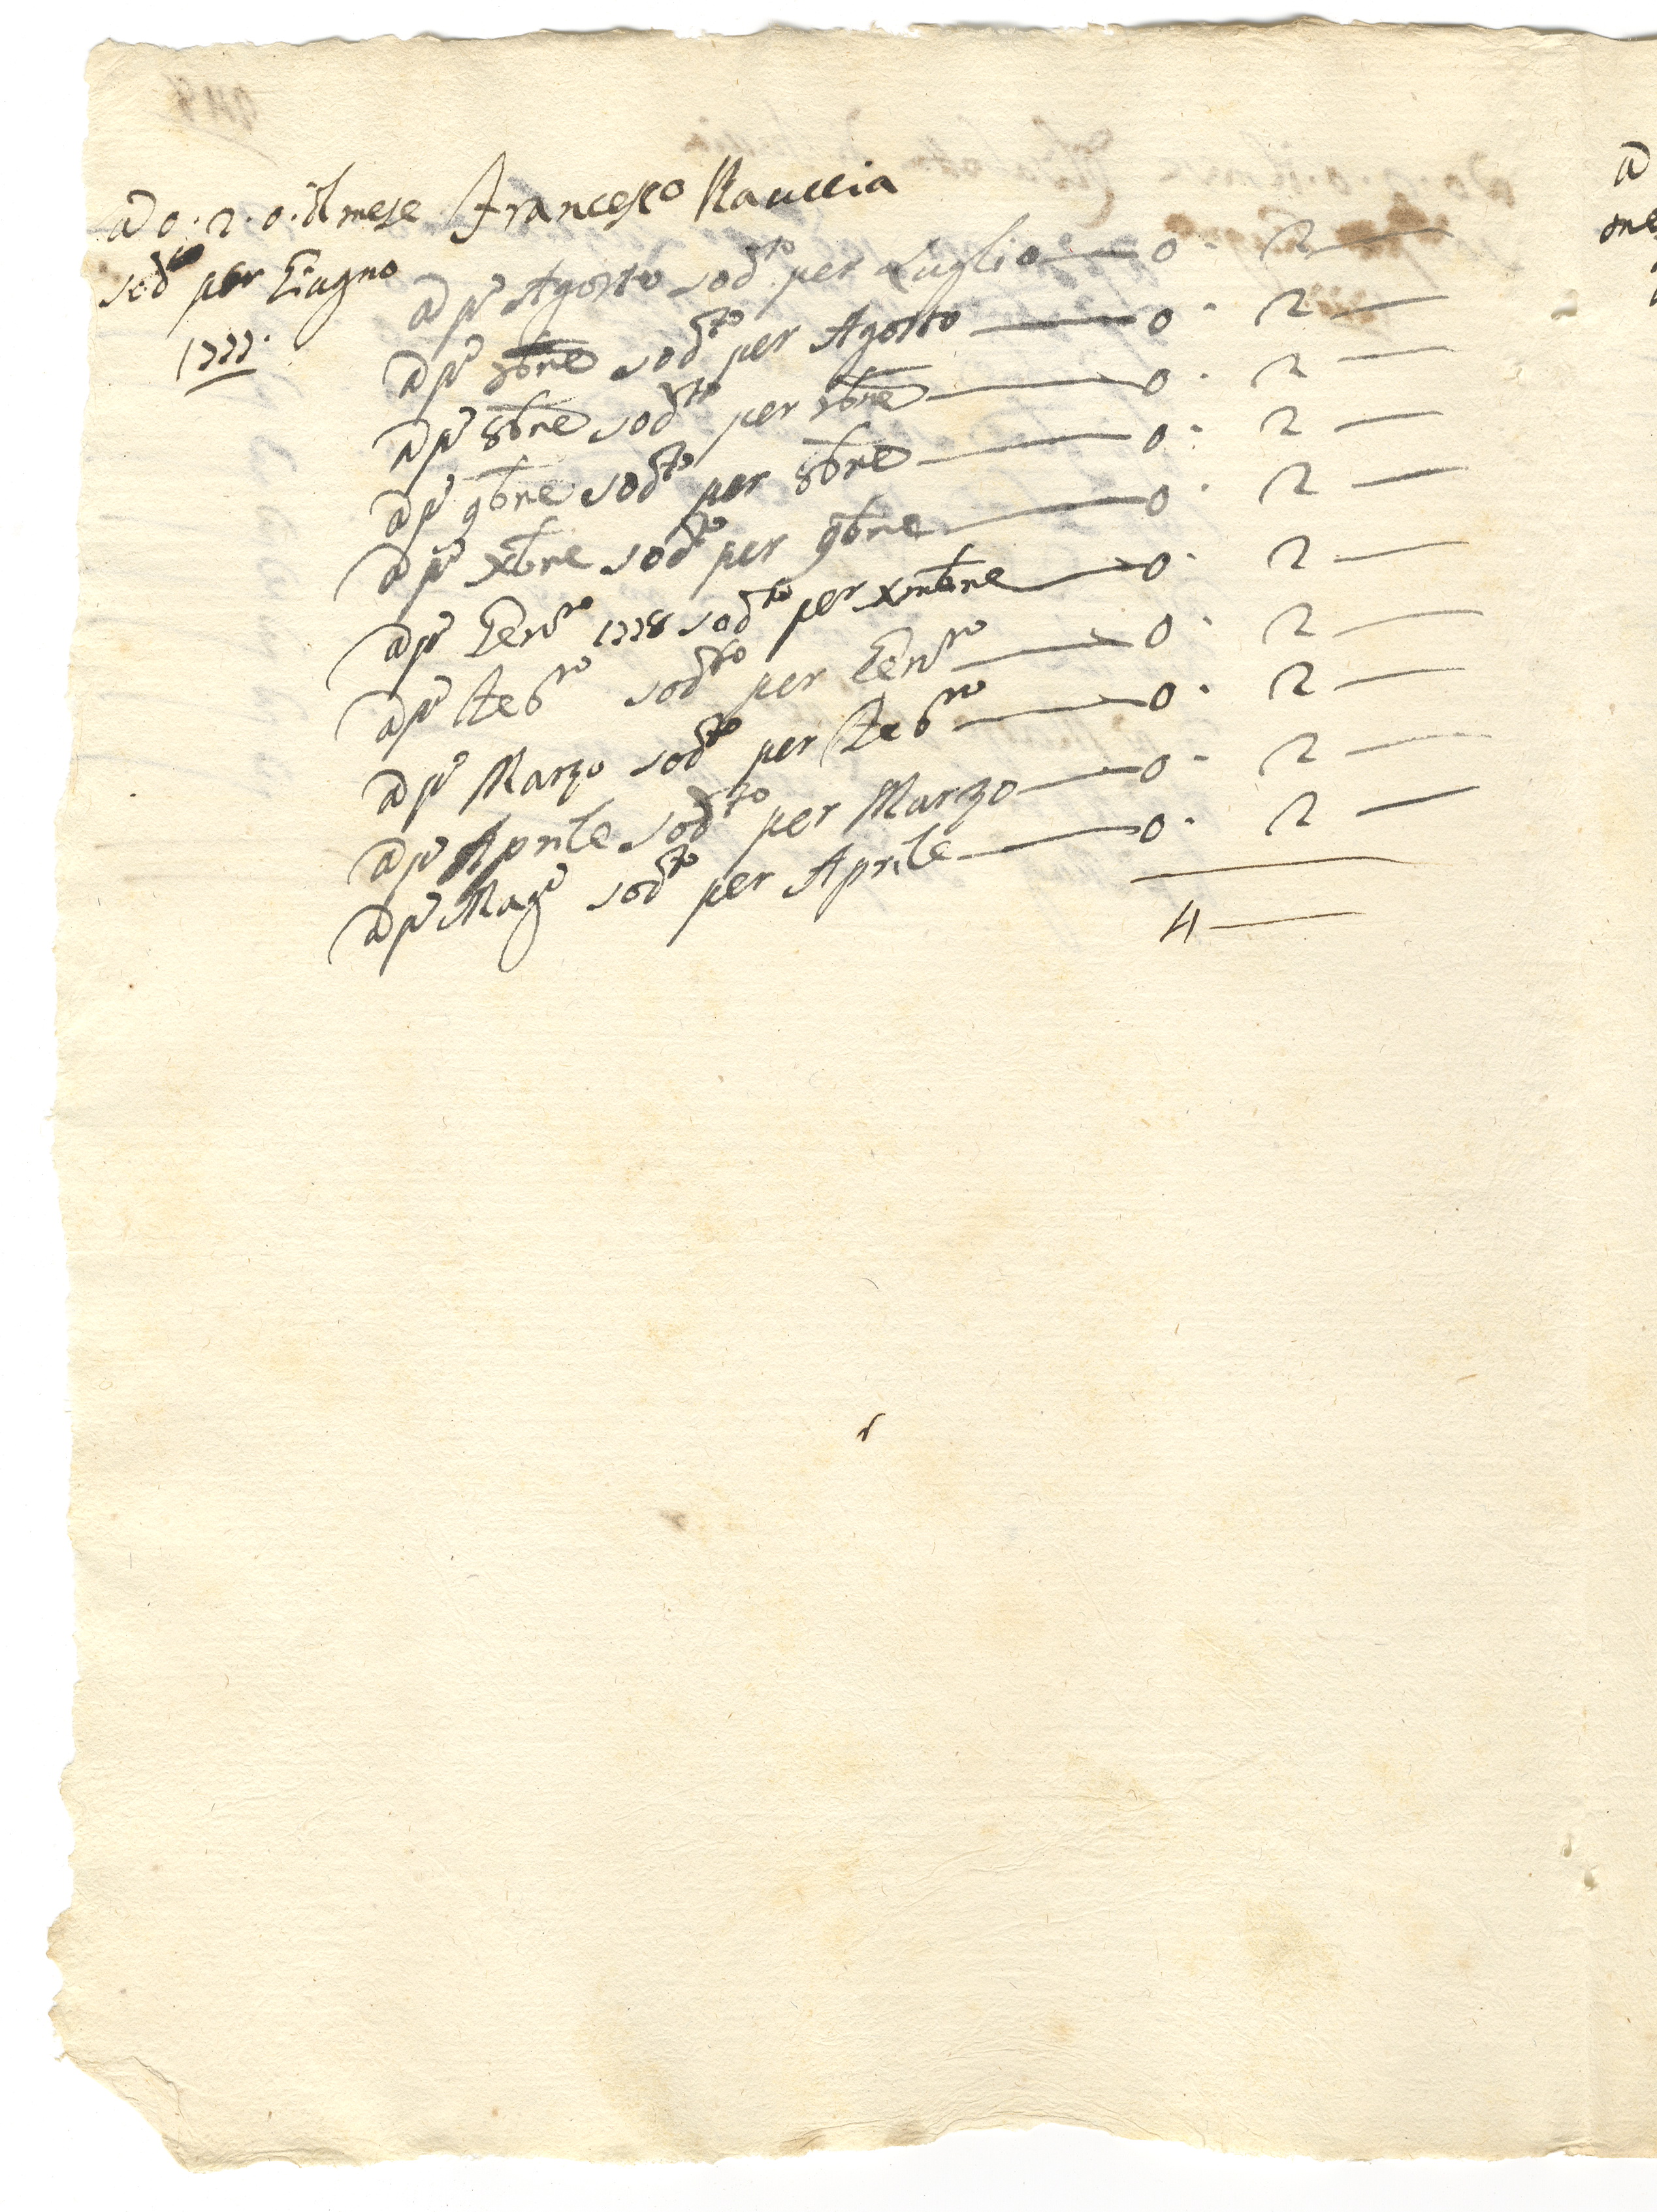 a D 0. 2. 0. il mese Francesco Rauccia
sod.to per Giugno
1777.
a p.o Agosto sod.to per Luglio — 0. 2 —
a p.o 7bre sod.to per Agosto — 0. 2 —
a p.o 8bre sod.to per 7bre — 0. 2 —
a p.o 9bre sod.to per 8bre — 0. 2 —
a p.o xbre sod.to per 9bre — 0. 2 —
a p.o Gen.ro 1778 sod.to per xmbre — 0. 2 —
a p.o Feb.ro sod.to per Gen.ro — 0. 2 —
a p.o Marzo sod.to per Feb.ro — 0. 2 —
a p.o Aprile sod.to per Marzo — 0. 2 —
a p.o Mag.o sod.to per Aprile — 0. 2 —
4 —